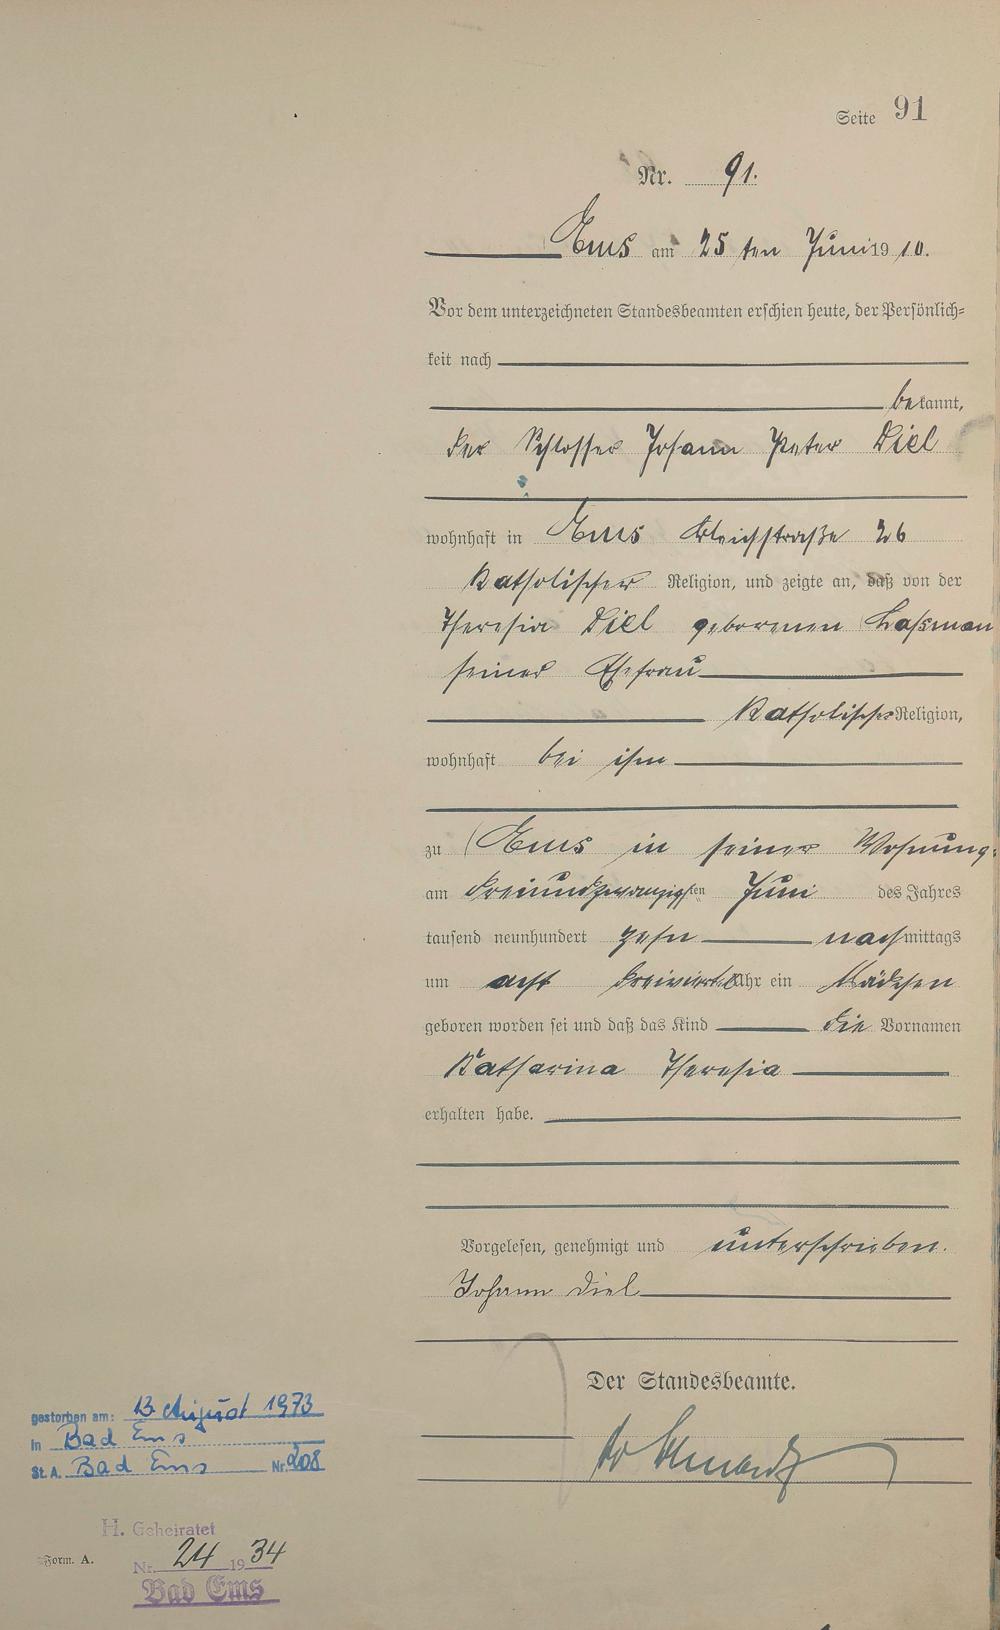 Seite 91
Nr. 91.
Ems am 25 ten Juni 1910.
Vor dem unterzeichneten Standesbeamten erschien heute, der Persönlich=
keit nach
bekannt,
der Schlosser Johann Peter Diel
wohnhaft in Ems Bleichstraße 26
Katholischer Religion, und zeigte an, daß von der
Theresia Diel geborenen
seiner Ehefrau
Katholischer Religion,
wohnhaft bei ihm
zu Ems in seiner Wohnung
am dreiundzwanzigsten Juni des Jahres
tausend neunhundert zehn nachmittags
um acht dreiviertel Uhr ein Mädchen
geboren worden sei und daß das Kind die Vornamen
Katharina Theresia
erhalten habe.
Vorgelesen, genehmigt und unterschrieben.
Johann Diel
Der Standesbeamte.
gestorben am: 13. August 1973
in Bad Ems
St. A. Bad Ems Nr. 208
H. Geheiratet
Form. A. Nr. 24 1934
Bad Ems